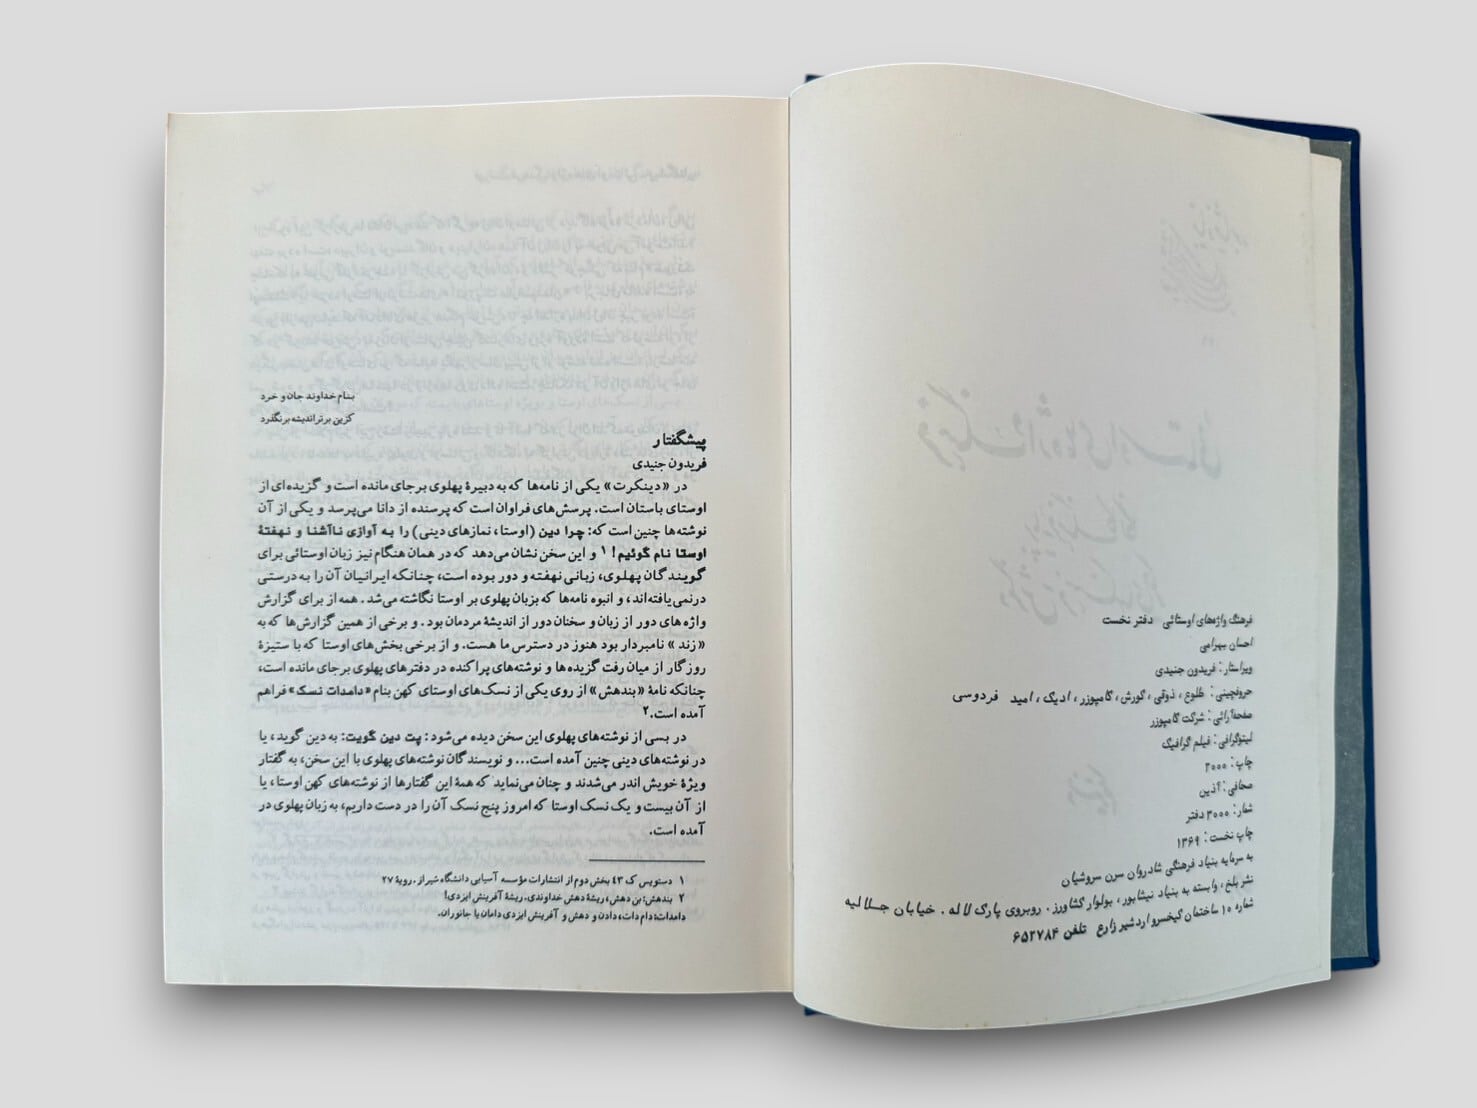 فرهنگ واژه‌های اوستائی دفتر نخست
احسان بهرامی
ویراستار: فریدون جنیدی
حروفچینی: طلوع، ذوقی، کورش، کامپوزر، ادیک، امید فردوسی
صفحه‌آرائی: شرکت کامپوزر
لیتوگرافی: فیلم گرافیک
چاپ: ۲۰۰۰
صحافی: آذین
شمار: ۳۰۰۰ دفتر
چاپ نخست: ۱۳۶۹
به سرمایه بنیاد فرهنگی شادروان سرن سروشیان
نشر بلخ، وابسته به بنیاد نیشابور، بولوار کشاورز. روبروی پارک لاله. خیابان جلالیه
شماره ۱۰ ساختمان کیخسرو اردشیر زارع تلفن ۶۵۲۷۸۴
بنام خداوند جان و خرد
کزین برتر اندیشه برنگذرد
پیشگفتار
فریدون جنیدی
در «دینکرت» یکی از نامه‌ها که به دبیرهٔ پهلوی برجای مانده است و گزیده‌ای از
اوستای باستان است. پرسش‌های فراوان است که پرسنده از دانا می‌پرسد و یکی از آن
نوشته‌ها چنین است که: چرا دین (اوستا، نمازهای دینی) را به آوازی ناآشنا و نهفتهٔ
اوستا نام گوئیم! ۱ و این سخن نشان می‌دهد که در همان هنگام نیز زبان اوستائی برای
گویندگان پهلوی، زبانی نهفته و دور بوده است، چنانکه ایرانیان آن را به درستی
درنمی‌یافته‌اند، و انبوه نامه‌ها که بزبان پهلوی بر اوستا نگاشته می‌شد. همه از برای گزارش
واژه های دور از زبان و سخنان دور از اندیشهٔ مردمان بود. و برخی از همین گزارش‌ها که به
«زند» نامبردار بود هنوز در دسترس ما هست. و از برخی بخش‌های اوستا که با ستیزهٔ
روزگار از میان رفت گزیده‌ها و نوشته‌های پراکنده در دفترهای پهلوی برجای مانده است،
چنانکه نامهٔ «بندهش» از روی یکی از نسک‌های اوستای کهن بنام «دامدات نسک» فراهم
آمده است.۲
در بسی از نوشته‌های پهلوی این سخن دیده می‌شود: پت دین گویت: به دین گوید، یا
در نوشته‌های دینی چنین آمده است... و نویسندگان نوشته‌های پهلوی با این سخن، به گفتار
ویژهٔ خویش اندر می‌شدند و چنان می‌نماید که همهٔ این گفتارها از نوشته‌های کهن اوستا، یا
از آن بیست و یک نسک اوستا که امروز پنج نسک آن را در دست داریم، به زبان پهلوی در
آمده است.
۱ دستویس ک ۴۳ بخش دوم از انتشارات مؤسسه آسیایی دانشگاه شیراز. رویهٔ ۲۷
۲ بندهش: بن دهش، ریشهٔ دهش خداوندی. ریشهٔ آفرینش ایزدی!
دامدات: دام دات، دادن و دهش و آفرینش ایزدی دامان یا جانوران.